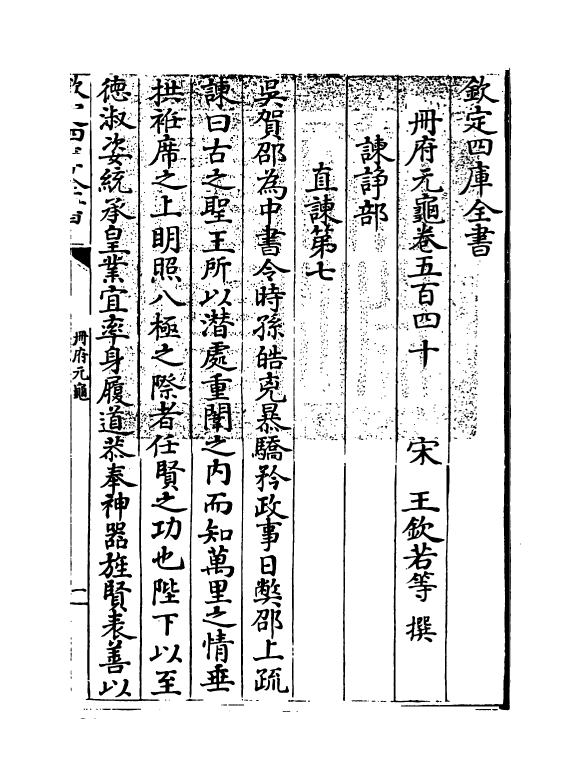 欽定四庫全書
冊府元龜卷五百四十　宋　王欽若等　撰
諫諍部
直諫第七
吳賀邵為中書令時孫皓克暴驕矜政事日獘邵上疏
諫曰古之聖王所以潛處重闈之内而知萬里之情垂
拱袵席之上明照八極之際者任賢之功也陛下以至
德淑姿統承皇業宜率身履道恭奉神器旌賢表善以
冊府元龜
一